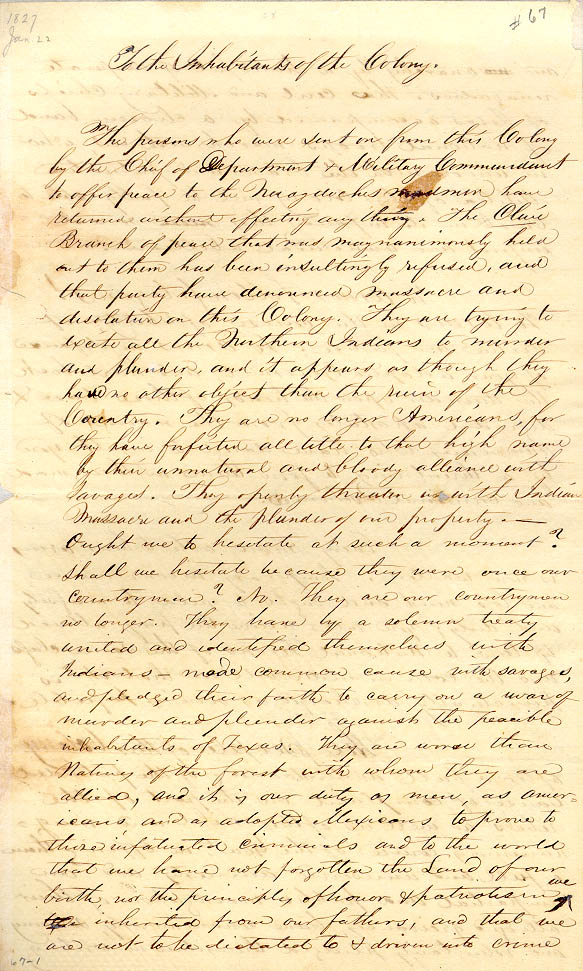 1827
Jan. 22
#67
To the Inhabitants of the Colony.
The persons who were sent on from this Colony
by the Chief of Department & Military Commandant
to offer peace to the Nacogdoches madmen have
returned without effecting any thing. The Olive
Branch of peace that was magnanimously held
out to them has been insultingly refused, and
that party have denounced massacre and
disolation on this Colony. They are trying to
excite all the Northern Indians to murder
and plunder, and it appears as though they
have no other object than the ruin of the
Country. They are no longer Americans, for
they have forfeited all title to that high name
by their unnatural and bloody alliance with
Savages. They openly threaten us with Indian
Massacre and the plunder of our property.—
Ought we to hesitate at such a moment?
Shall we hesitate because they were once our
countrymen? No. They are our countrymen
no longer. They have by a solemn treaty
united and identified themselves with
Indians — made common cause with savages,
and pledged their faith to carry on a war of
murder and plunder against the peacible
inhabitants of Texas. They are worse than
Natives of the forest with whom they are
allied, and it is our duty as men, as amer-
icans and as adopted Mexicans to prove to
those infatuated criminals and to the world
that we have not forgotten the Land of our
birth, nor the principles of honor & patriotism we
inherited from our fathers, and that we
are not to be dictated to & driven into crime
67-1